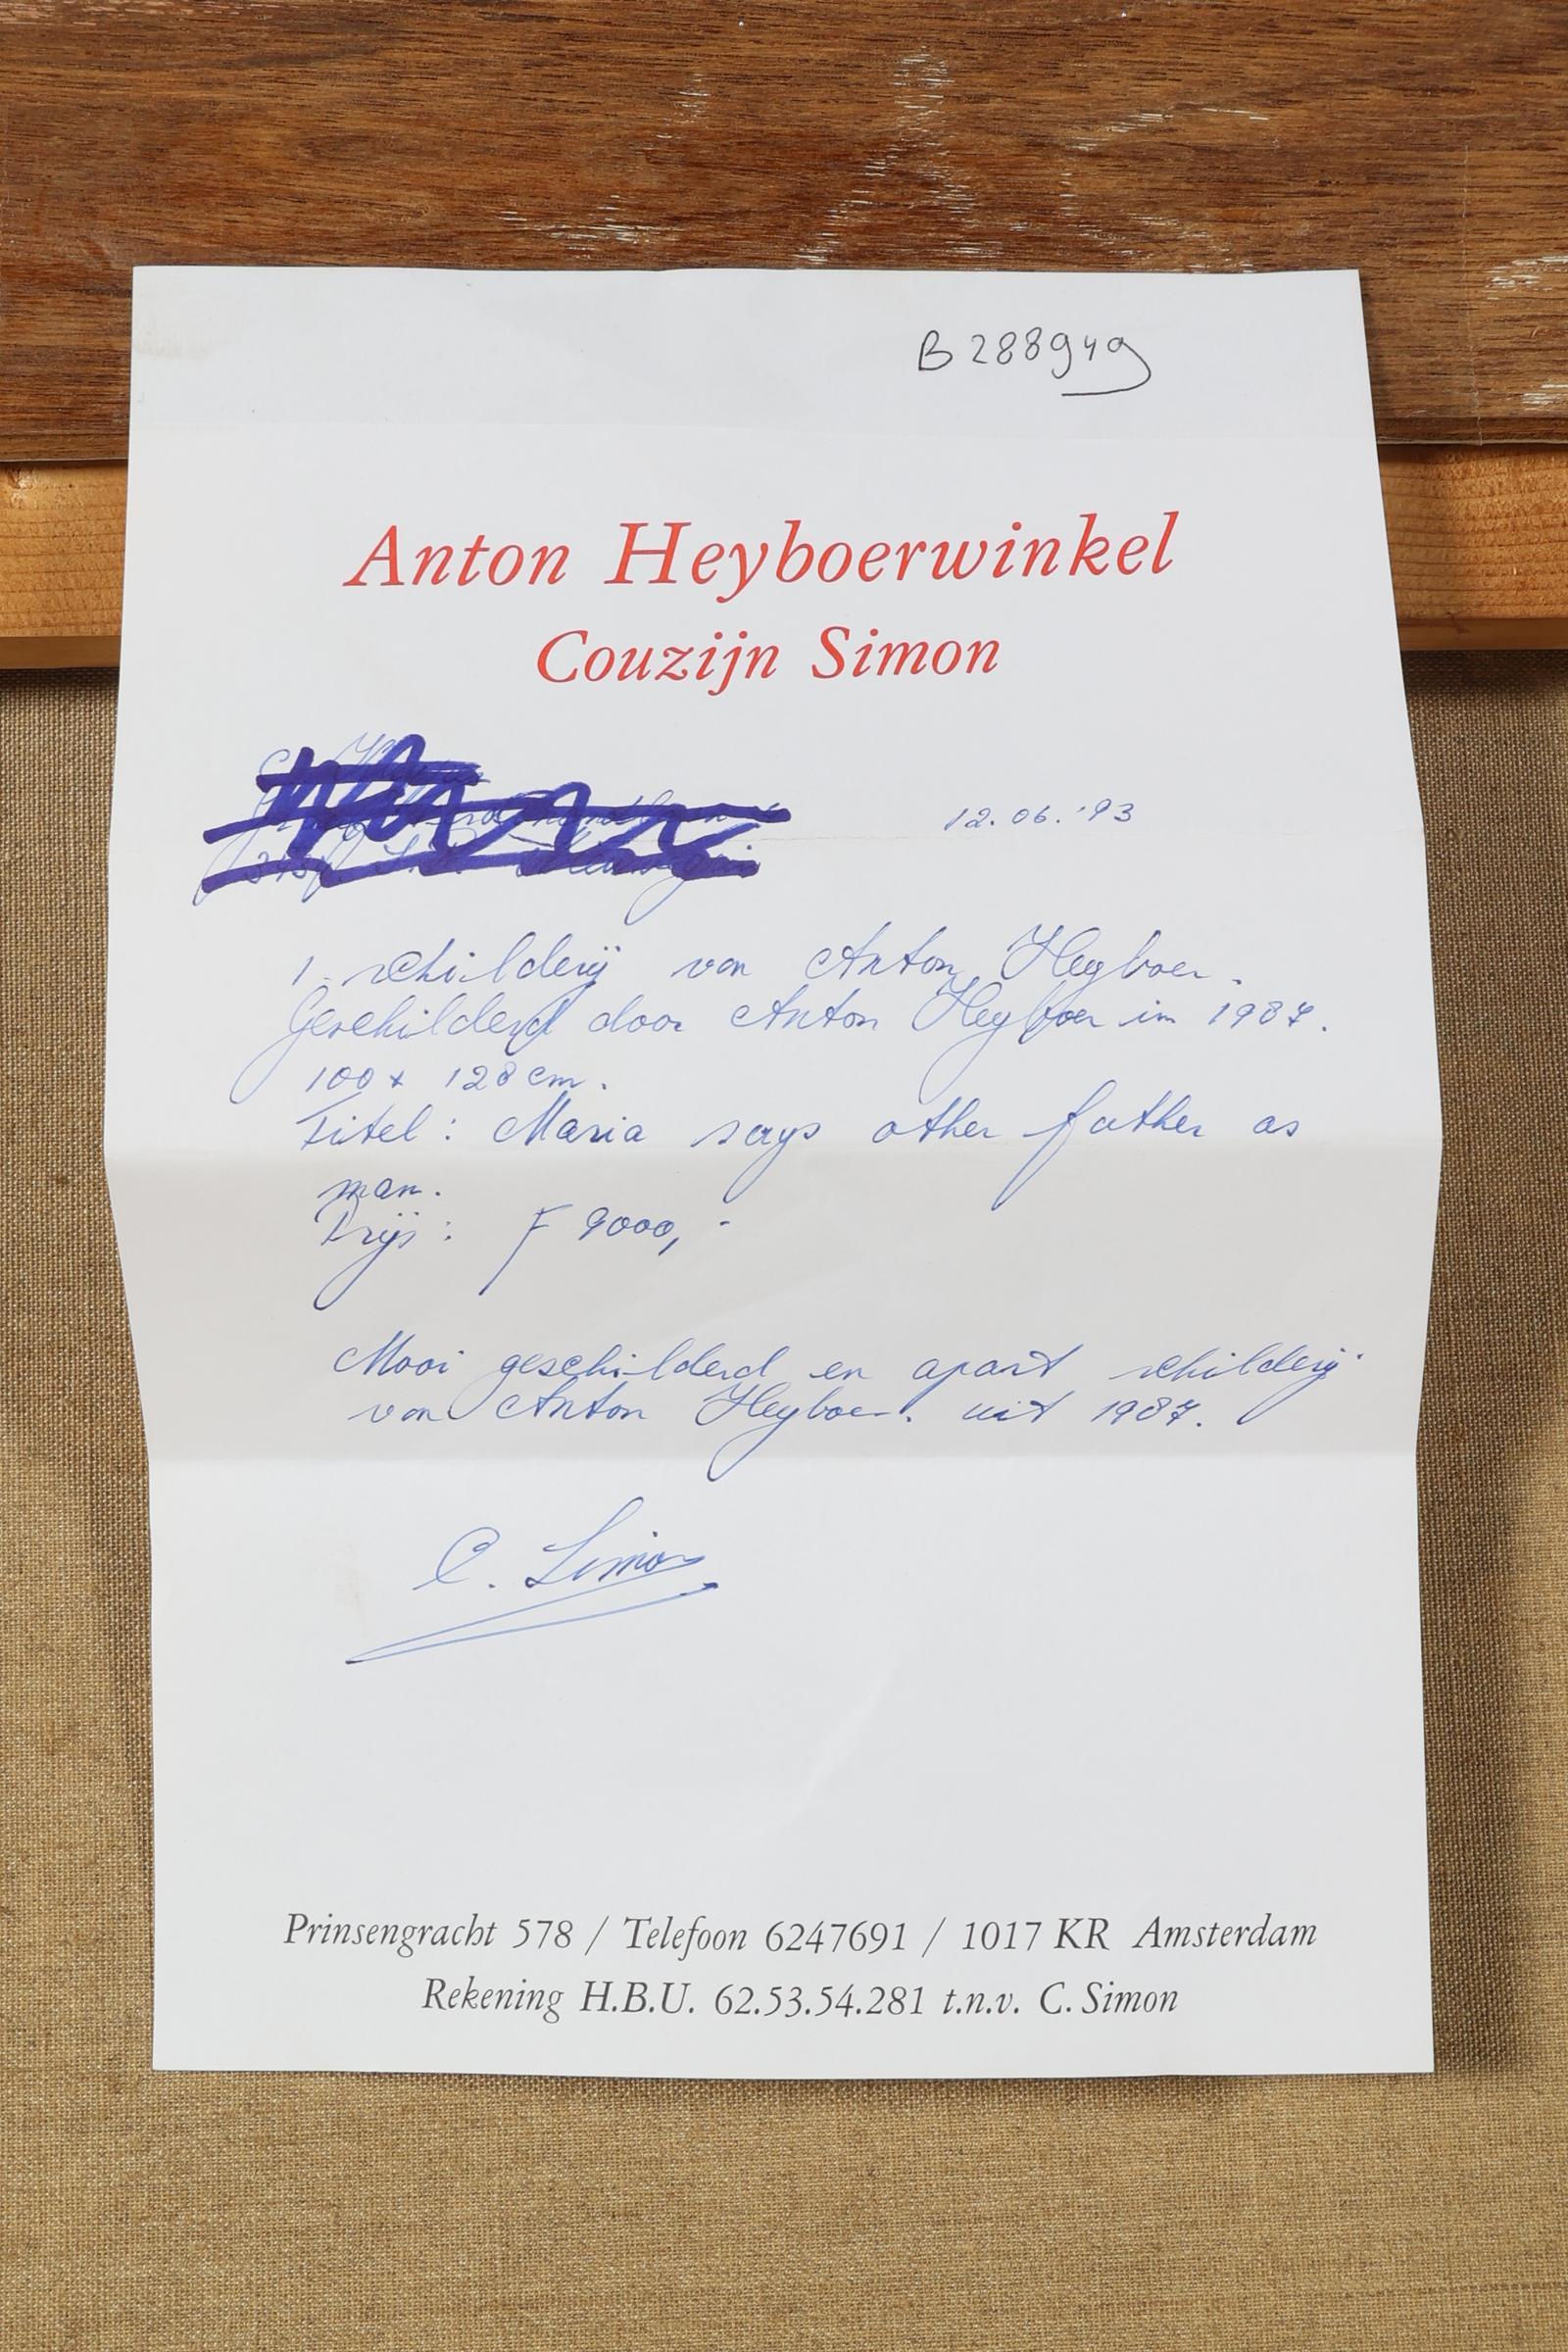 B288949
Anton Heyboerwinkel
Couzijn Simon
12.06.'93
1 schilderij van Anton Heyboer.
Geschilderd door Anton Heyboer in 1987.
100 x 128 cm.
Titel: Maria says other father as
man.
Prijs: F 9000,-
Mooi geschilderd en apart schilderij
van Anton Heyboer. uit 1987.
C. Simon
Prinsengracht 578 / Telefoon 6247691 / 1017 KR Amsterdam
Rekening H.B.U. 62.53.54.281 t.n.v. C. Simon